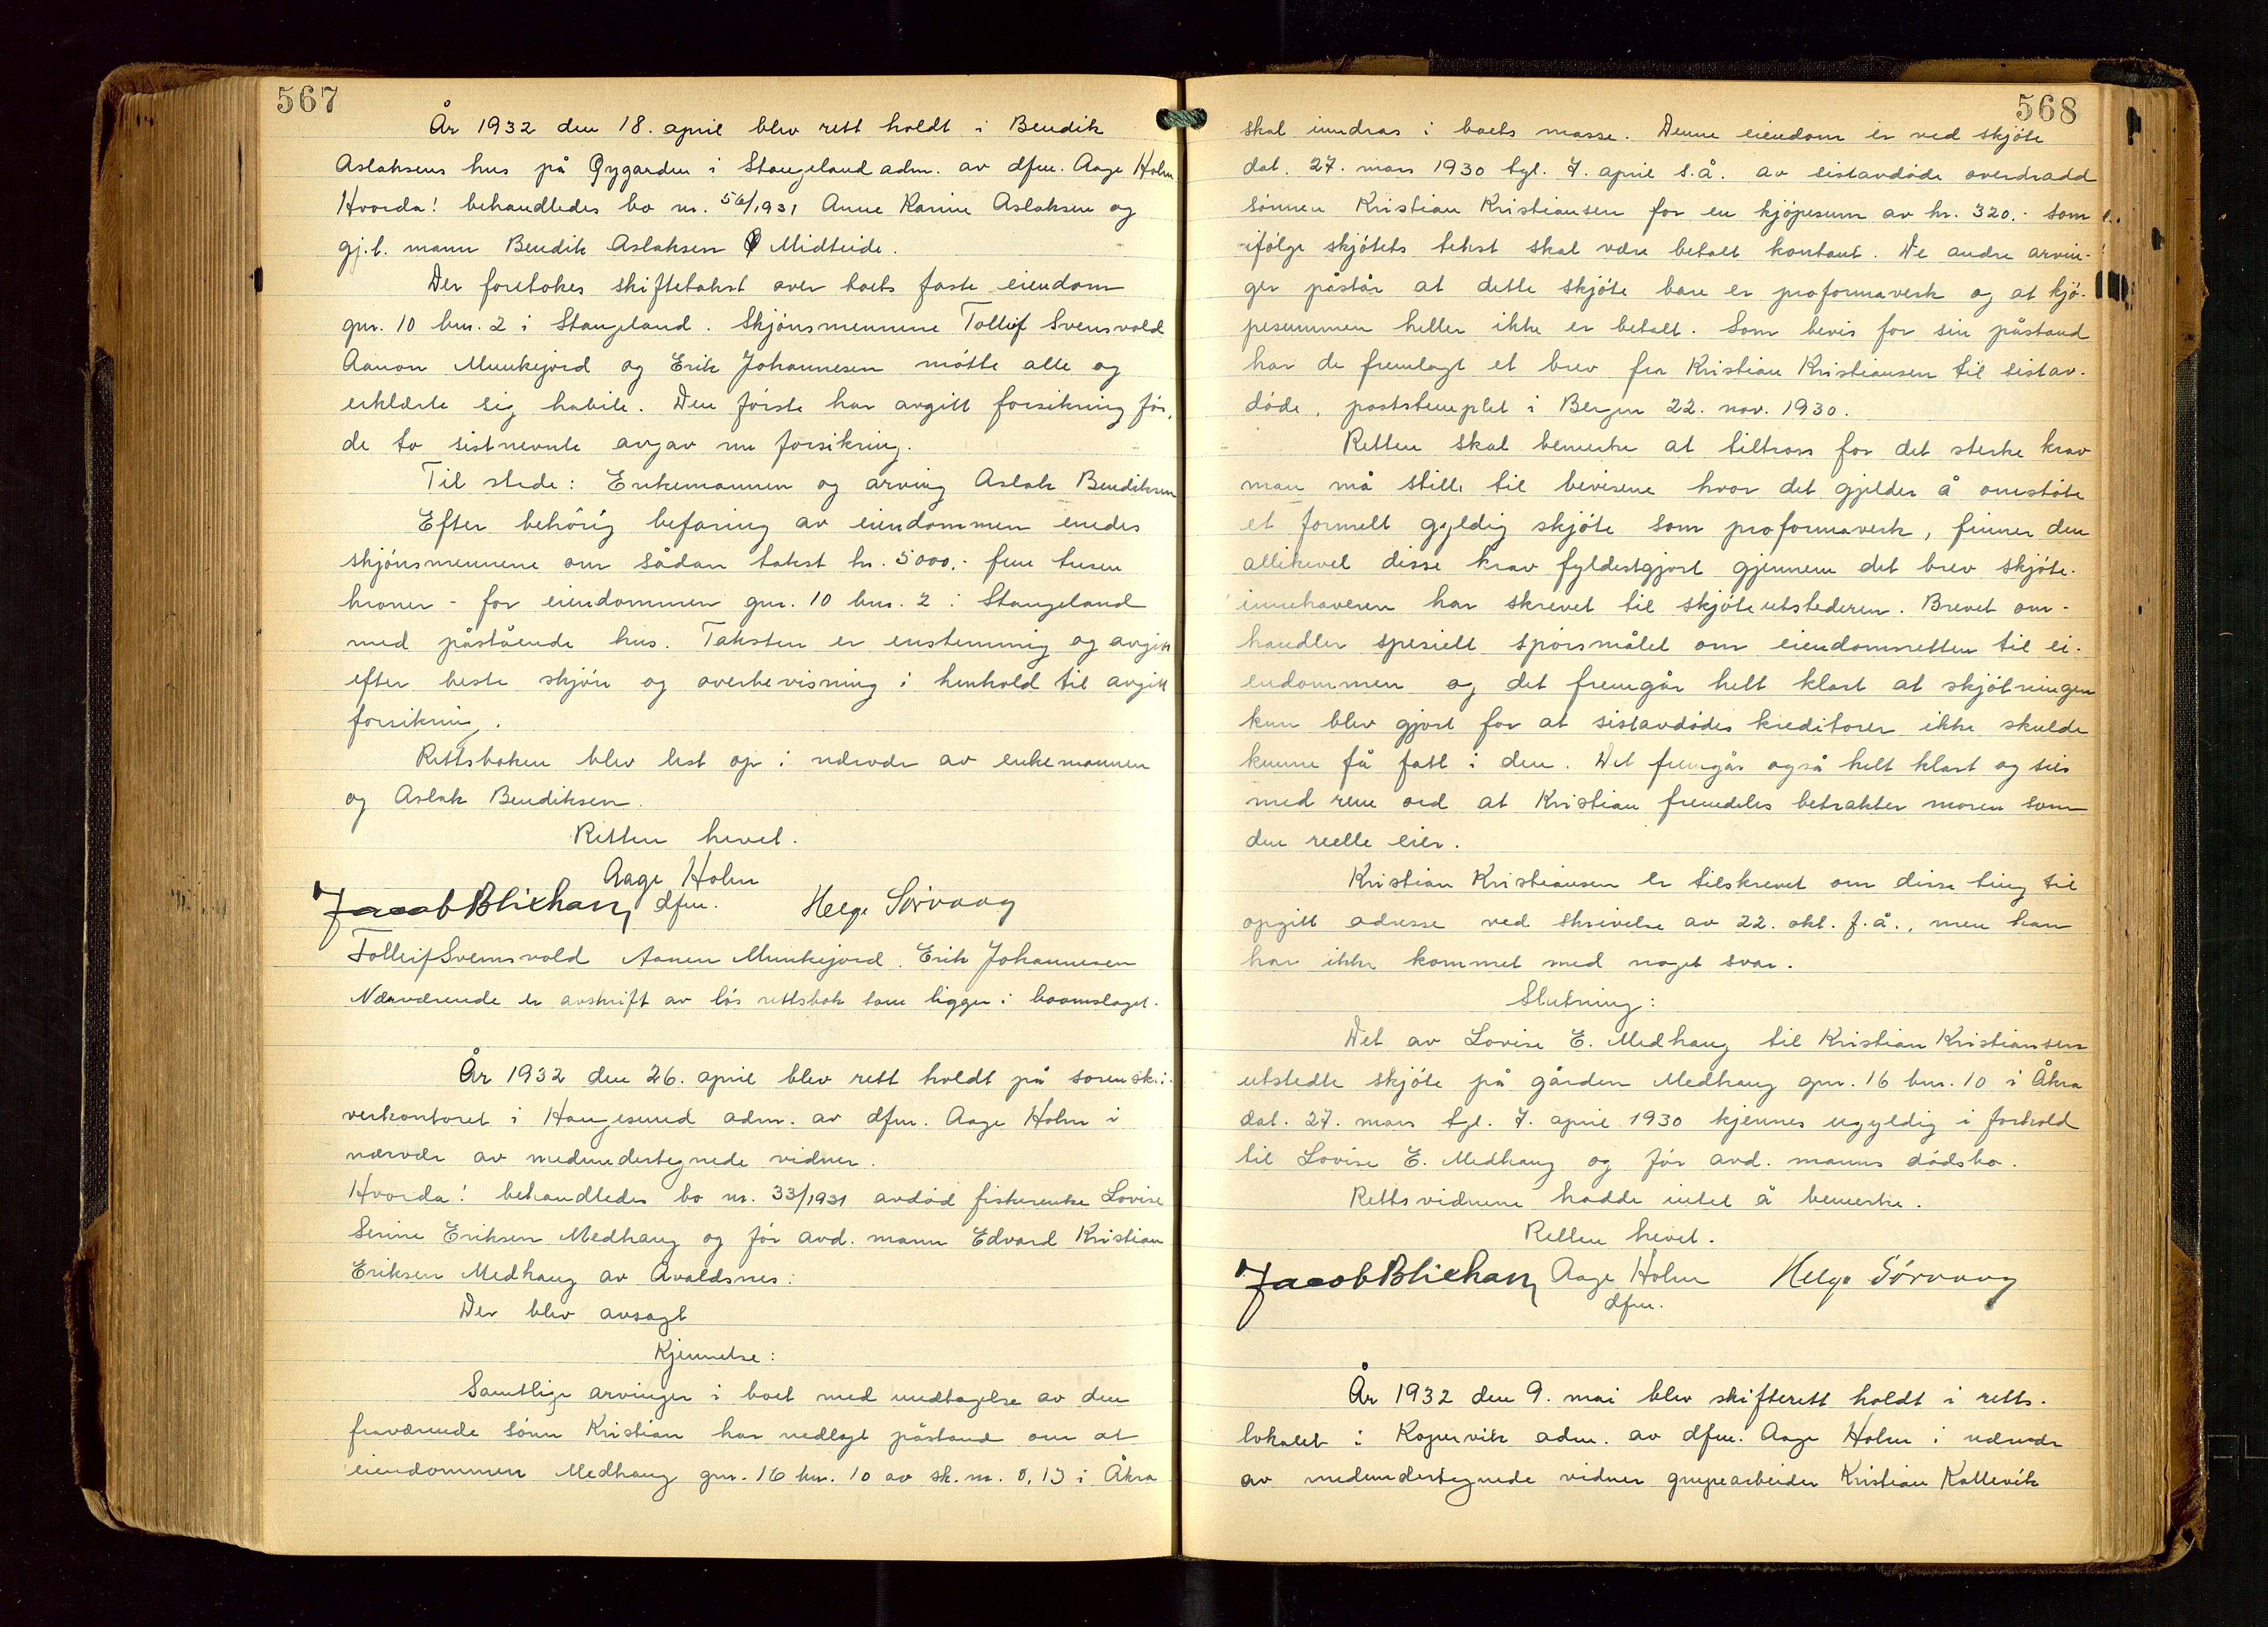 567
År 1932 den 18. april blev rett holdt i Bendik
Aslaksens hus på Øygarden i Stangeland adm. av dfm. Aage Holm.
Hvorda! behandledes bo nr. 56/1931 Anne Karine Aslaksen og
gj.l. mann Bendik Aslaksen Midteide.
Der foretokes skiftetakst over boets faste eiendom
gnr. 10 bnr. 2 i Stangeland. Skjønsmennene Tollef Svensvold
Aanon Munkejord og Erik Johannesen møtte alle og
erklærte sig habile. Den første har avgitt forsikring før,
de to sistnevnte avgav nu forsikring.
Til stede: Enkemannen og arving Aslak Bendiksen
Efter behørig befaring av eiendommen enedes
skjønsmennene om sådan takst kr. 5000,- fem tusen
kroner - for eiendommen gnr. 10 bnr. 2 i Stangeland
med påstående hus. Taksten er enstemmig og avgitt
efter beste skjøn og overbevisning i henhold til avgitt
forsikring.
Rettsboken blev lest op i nærvær av enkemannen
og Aslak Bendiksen.
Retten hevet.
Aage Holm
Jacob Blikhavn dfm. Helge Sørvaag
Tolleif Svensvold Aanen Munkejord. Erik Johannesen
Nærværende er avskrift av løs rettsbok som ligger i boomslaget.
År 1932 den 26. april blev rett holdt på sorenskri-
verkontoret i Haugesund adm. av dfm. Aage Holm i
nærvær av medundertegnede vidner.
Hvorda! behandledes bo nr. 33/1931 avdød fiskerenke Lovise
Serine Eriksen Medhaug og før avd. mann Edvard Kristian
Eriksen Medhaug av Avaldsnes:
Der blev avsagt
Kjennelse:
Samtlige arvinger i boet med undtagelse av den
fraværende sønn Kristian har nedlagt påstand om at
eiendommen Medhaug gnr. 16 bnr. 10 av sk.m. 0,13 i Åkra
568
skal inndras i boets masse. Denne eiendom er ved skjøte
dat. 27. mars 1930 tgl. 7. april s.å. av sistavdøde overdradd
sønnen Kristian Kristiansen for en kjøpesum av kr. 320.- som
ifølge skjøtets tekst skal være betalt kontant. De andre arvin-
ger påstår at dette skjøte bare er proformaverk og at kjø-
pesummen heller ikke er betalt. Som bevis for sin påstand
har de fremlagt et brev fra Kristian Kristiansen til sistav-
døde, poststemplet i Bergen 22. nov. 1930.
Retten skal bemerke at tiltross for det sterke krav
man må stille til bevisene hvor det gjelder å omstøte
et formelt gyldig skjøte som proformaverk, finner den
allikevel disse krav fyldestgjort gjennem det brev skjøte-
innehaveren har skrevet til skjøteutstederen. Brevet om-
handler spesielt spørsmålet om eiendomsretten til ei-
endommen og det fremgår helt klart at skjøtningen
kun blev gjort for at sistavdødes kreditorer ikke skulde
kunne få fatt i den. Det fremgår også helt klart og sies
med rene ord at Kristian fremdeles betrakter moren som
den reelle eier.
Kristian Kristiansen er tilskrevet om disse ting til
opgitt adresse ved skrivelse av 22. okt. f.å., men han
har ikke kommet med noget svar.
Slutning:
Det av Lovise E. Medhaug til Kristian Kristiansen
utstedte skjøte på gården Medhaug gnr. 16 bnr. 10 i Åkra
dat. 27. mars tgl. 7. april 1930 kjennes ugyldig i forhold
til Lovise E. Medhaug og før avd. manns dødsbo.
Rettsvidnene hadde intet å bemerke.
Retten hevet.
Jacob Blikhavn Aage Holm Helge Sørvaag
dfm.
År 1932 den 9. mai blev skifterett holdt i retts-
lokalet i Kopervik adm. av dfm. Aage Holm i nærvær
av medundertegnede vidner grupearbeider Kristian Kallevik